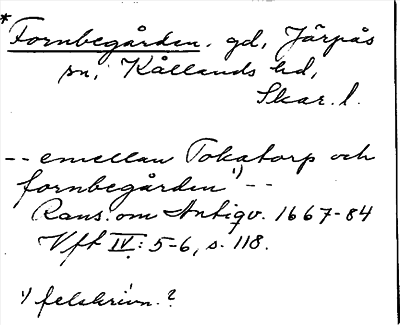 * Fornbegården. gd, Järpås
sn, Kållands hd,
Skar. l.
-- emellan Tokatorp och
fornbegården¹) --
Rans. om Antiqv. 1667-84
Vft IV: 5-6, s. 118.
¹) felskrivn.?